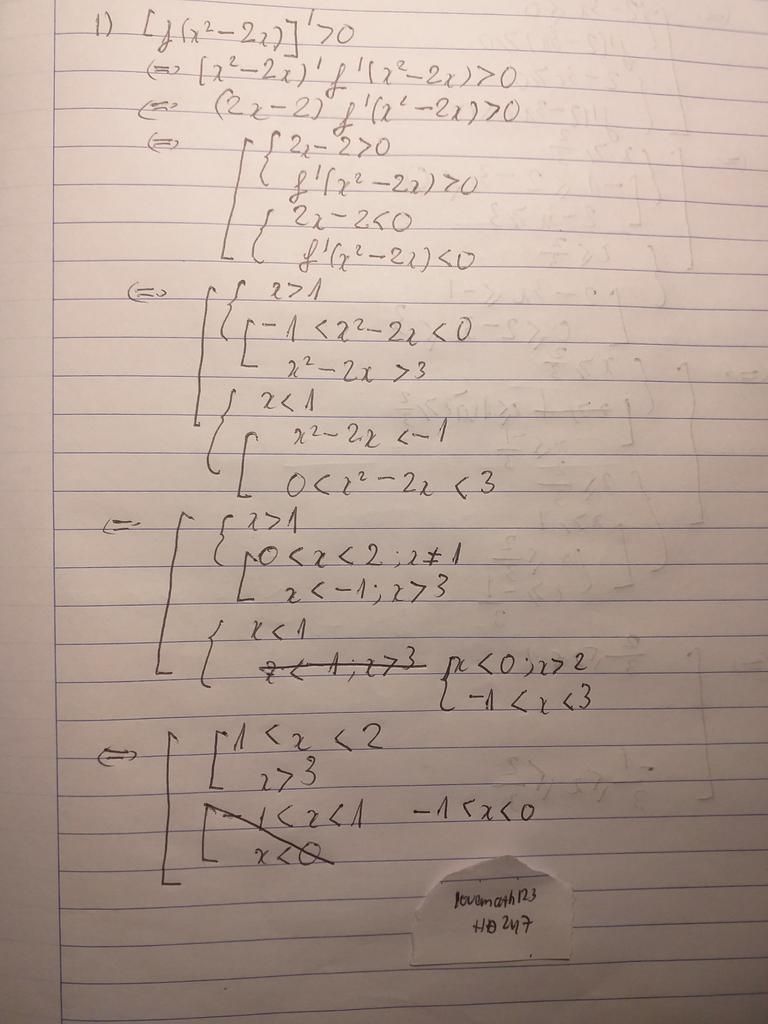 1) [f(x²-2x)]'>0
⇔ (x²-2x)' f'(x²-2x)>0
⇔ (2x-2) f'(x²-2x)>0
⇔ [ { 2x-2>0
f'(x²-2x)>0
{ 2x-2<0
f'(x²-2x)<0
⇔ [ { x>1
[ -1<x²-2x<0
x²-2x>3
{ x<1
[ x²-2x<-1
0<x²-2x<3
⇔ [ { x>1
[ 0<x<2; x≠1
x<-1; x>3
{ x<1
x<1; x>3 { x<0; x>2
-1<x<3
⇔ [ [ 1<x<2
x>3
[ -1<x<1 -1<x<0
x<0
lovemath123
HĐ247